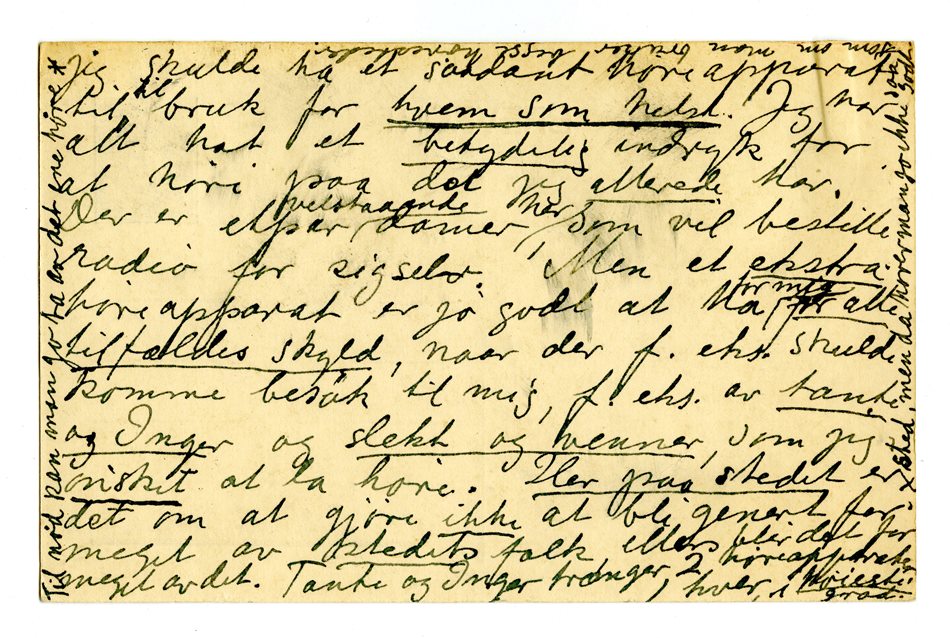 jig skulde ha et saadant höreapparat
til, til bruk for hvem som helst. Jeg har
alt hat et betydelig indryk for
at höri paa det jeg allerede har.
Der er etpar velstaaende damer her, som vil bestille
radio for sigselv. Men et ekstra
höreapparat er jo godt at ha for mig, for alle
tilfældes skyld, naar der f. eks. skulde
komme besök til mig, f. eks. av tante
og Inger og slekt og venner, som jeg
önsket at la höre. Her paa stedet er
det om at gjöre ikke at bli generet for
meget av stedets folk, ellers blir det for
meget av det. Tante og Inger trænger 2 höreapparater,
hver, i höieste
grad.
Til nöd kan man jo ta av det ene höre *
x sted, men da hörer man jo ikke saa godt
som om man bruker begge